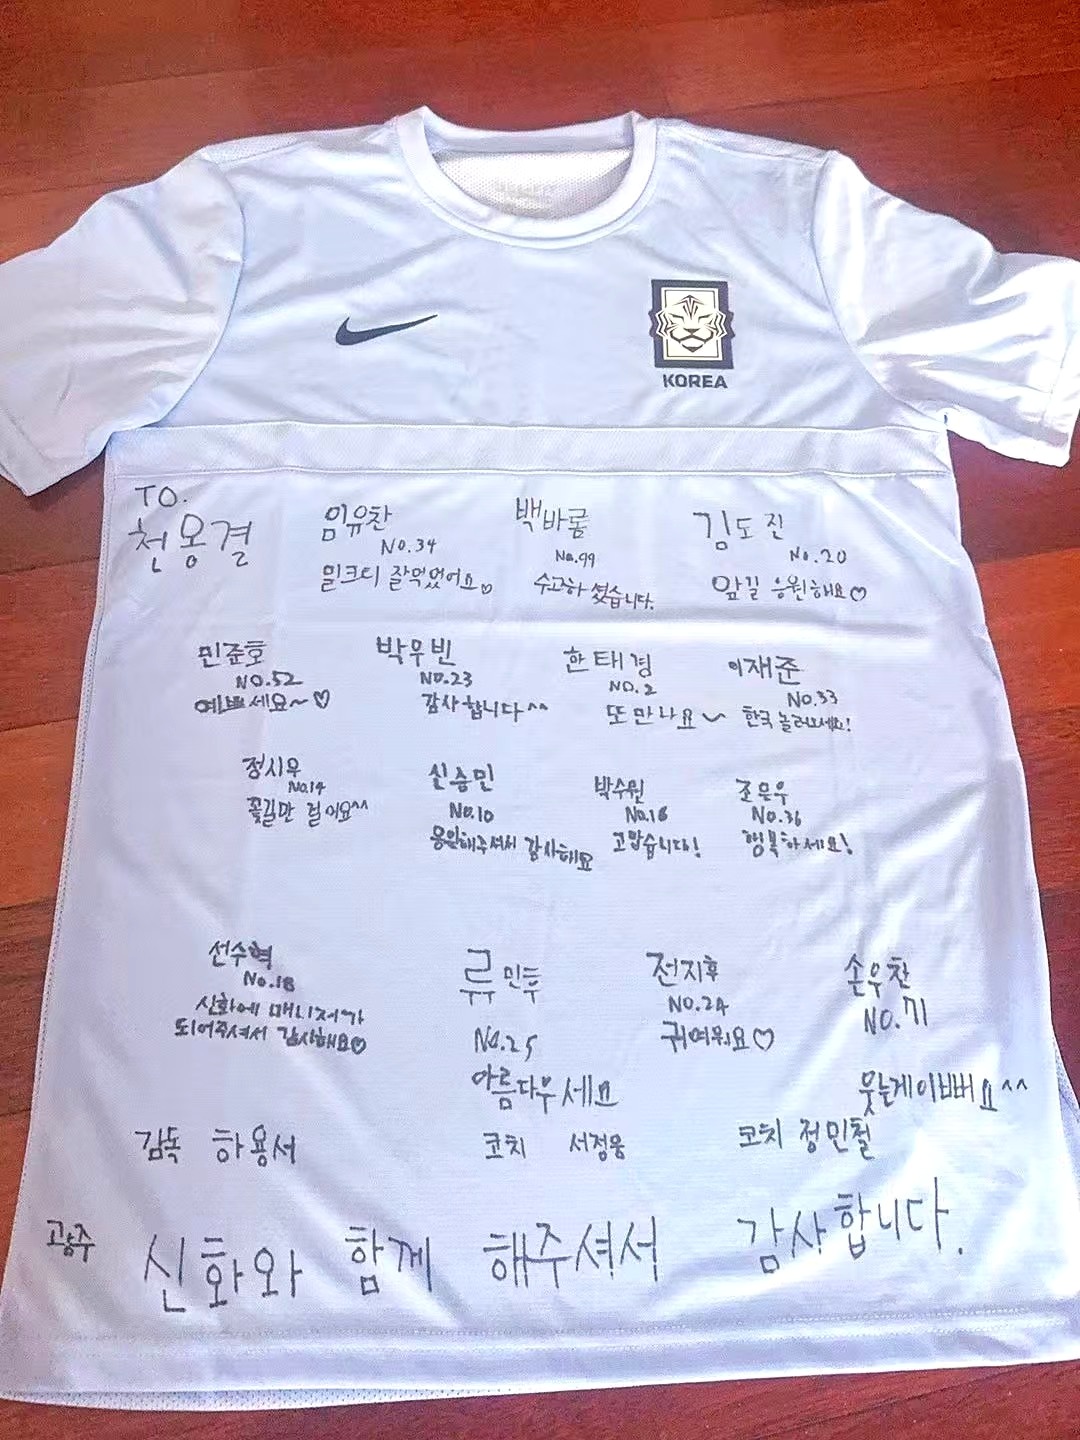 KOREA
TO.
천용결
임유찬
No.34
밀크티 잘먹었어요♡
백바롬
No.99
수고하셨습니다.
김도진
No.20
앞길 응원해요♡
민준호
NO.52
예쁘세요~♡
박우빈
NO.23
감사합니다^^
한태경
NO.2
또 만나요~
이재준
NO.33
한국 놀러오세요!
정시우
No.14
꽃길만 걸어요^^
신승민
No.10
응원해주셔서 감사해요
박수원
No.16
고맙습니다!
조은우
No.36
행복하세요!
선수혁
No.18
신화에 매니저가
되어주셔서 감사해요♡
류민투
No.25
아름다우세요
전지후
NO.24
귀여워요♡
손우찬
NO.71
웃는게이뻐요^^
감독 하용서
코치 서정웅
코치 정민철
광주
신화와 함께 해주셔서 감사합니다.